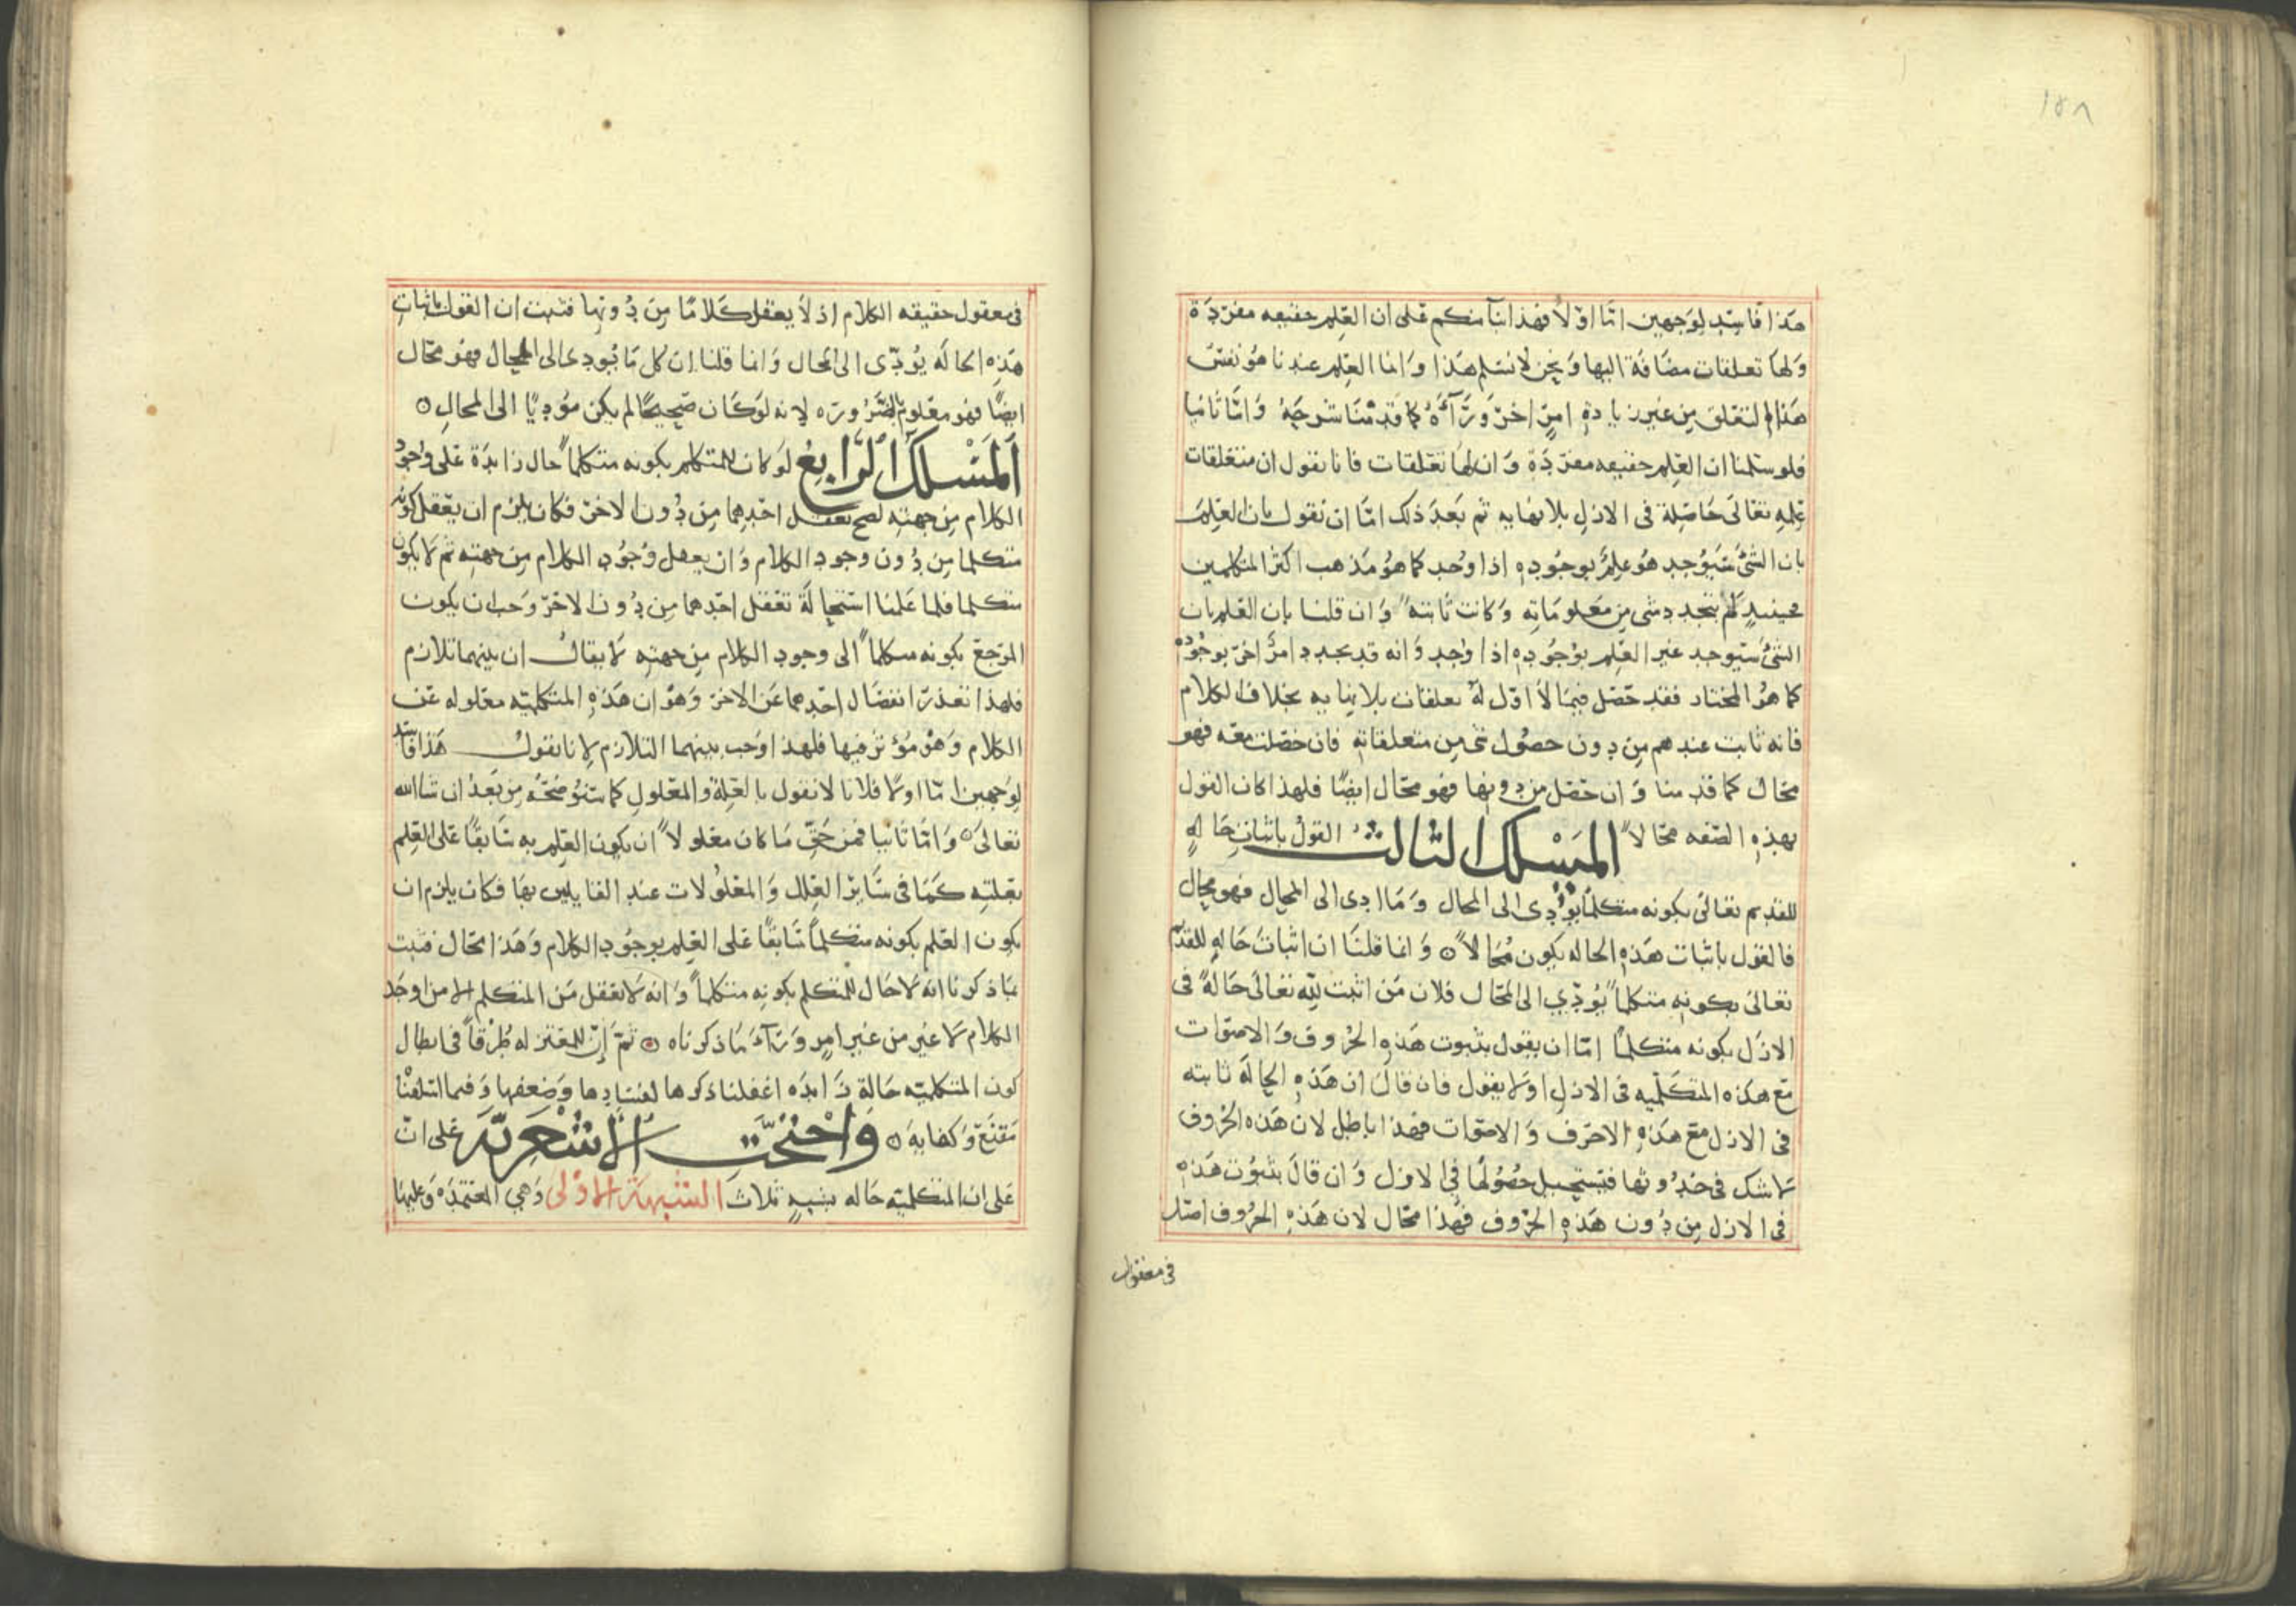 ١٥٨
هذا فاسد لوجهين اما اولا فهذا بنا منكم على ان العلم حقيقه مفردة
ولها تعلقات مضافة اليها ونحن لا نسلم هذا وانما العلم عندنا هو نفس
هذا التعلق من غير زيادة امر اخر ورآءه كما قدمنا شرحه واما ثانيا
فلو سلمنا ان العلم حقيقه مفردة وان لها تعلقات فانا نقول ان متعلقات
علمه تعالى حاصلة في الازل بلا نهايه ثم بعد ذلك اما ان نقول بان العلم
بان الشئ سيوجد هو علم بوجوده اذا وجد كما هو مذهب اكثر المتكلمين
فحينئذ لم يتجدد شي من معلوماته وكانت ثابته وان قلنا بان العلم بان
الشئ سيوجد غير العلم بوجوده اذا وجد وانه قد يجدد امر اخر بوجوده
كما هو المختار فقد حصل فيما لا اول له تعلقات بلا نهايه بخلاف الكلام
فانه ثابت عندهم من دون حصول شي من متعلقاته فان حصلت معه فهو
محال كما قدمنا وان حصل من دونها فهو محال ايضا فلهذا كان القول
بهذه الصفه محالا المسلك الثالث القول باثبات حاله
للقديم تعالى بكونه متكلما يؤدى الى المحال وما ادى الى المحال فهو محال
فالقول باثبات هذه الحاله يكون محالا ۝ وانما قلنا ان اثبات حاله للقديم
تعالى بكونه متكلما يؤدي الى المحال فلان من اثبت لله تعالى حالة في
الازل بكونه متكلما اما ان يقول بثبوت هذه الحروف والاصوات
مع هذه المتكلميه في الازل او لا يقول فان قال ان هذه الحالة ثابته
في الازل مع هذه الاحرف والاصوات فهذا باطل لان هذه الحروف
لا شك في حدوثها فيستحيل حصولها في الازل وان قال بثبوت هذه
في الازل من دون هذه الحروف فهذا محال لان هذه الحروف اصل
في معقول
في معقول حقيقه الكلام اذ لا يعقل كلاما من دونها فثبت ان القول باثبات
هذه الحاله يؤدى الى المحال وانما قلنا ان كل ما يودى الى المحال فهو محال
ايضا فهو معلوم بالضروره لانه لو كان صحيحا لم يكن موديا الى المحال ۝
المسلك الرابع لو كان للمتكلم بكونه متكلما حال زايدة على وجود
الكلام من جهته لصح تعقل احدهما من دون الاخر فكان يلزم ان يعقل كونه
متكلما من دون وجود الكلام وان يعقل وجود الكلام من جهته ثم لا يكون
متكلما فلما علمنا استحالة تعقل احدهما من دون الاخر وجب ان يكون
المرجع بكونه متكلما الى وجود الكلام من جهته لا يقال ان بينهما تلازم
فلهذا تعذر انفصال احدهما عن الاخر وهو ان هذه المتكلميه معلوله عن
الكلام وهو مؤثر فيها فلهذا وجب بينهما التلازم لانا نقول هذا فاسد
لوجهين اما اولا فلانا لا نقول بالعلة والمعلول كما سنوضحه من بعد ان شاالله
تعالى ۝ واما ثانيا فمن حق ما كان معلولا ان يكون العلم به سابقا على العلم
بعلته كما في ساير العلل والمعلولات عند القايلين بها فكان يلزم ان
يكون العلم بكونه متكلما سابقا على العلم بوجود الكلام وهذا محال فثبت
بما ذكرنا انه لا حال للمتكلم بكونه متكلما وانه لا يعقل من المتكلم الا من اوجد
الكلام لا غير من غير امر ورآء ما ذكرناه ۝ ثم ان للمعتزله طرقا في ابطال
كون المتكلميه حالة زايده اغفلنا ذكرها لفسادها وضعفها وفيما اسلفنا
مقنع وكفايه ۝ واحتجت الاشعريه على ان
على ان المتكلميه حاله بشبه ثلاث الشبهة الاولى وهي المعتمده وعليها